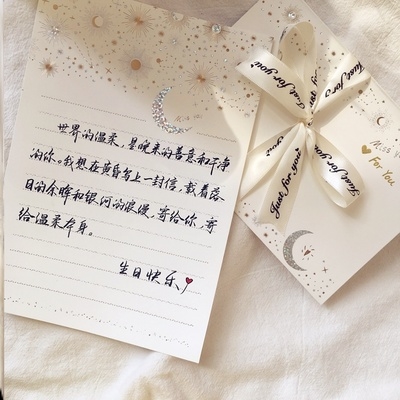 世界的温柔，是晚来的善意和干净
的你。我想在黄昏写上一封信，载着落
日的余晖和银河的浪漫，寄给你，寄
给温柔本身。
生日快乐！
Just for you
Just for you
Just for you
Just for you
Miss
For You